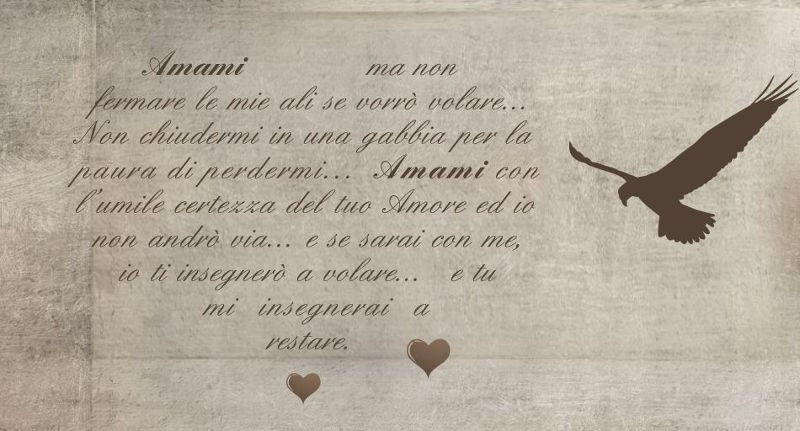 Amami ma non
fermare le mie ali se vorrò volare...
Non chiudermi in una gabbia per la
paura di perdermi... Amami con
l'umile certezza del tuo Amore ed io
non andrò via... e se sarai con me,
io ti insegnerò a volare... e tu
mi insegnerai a
restare.